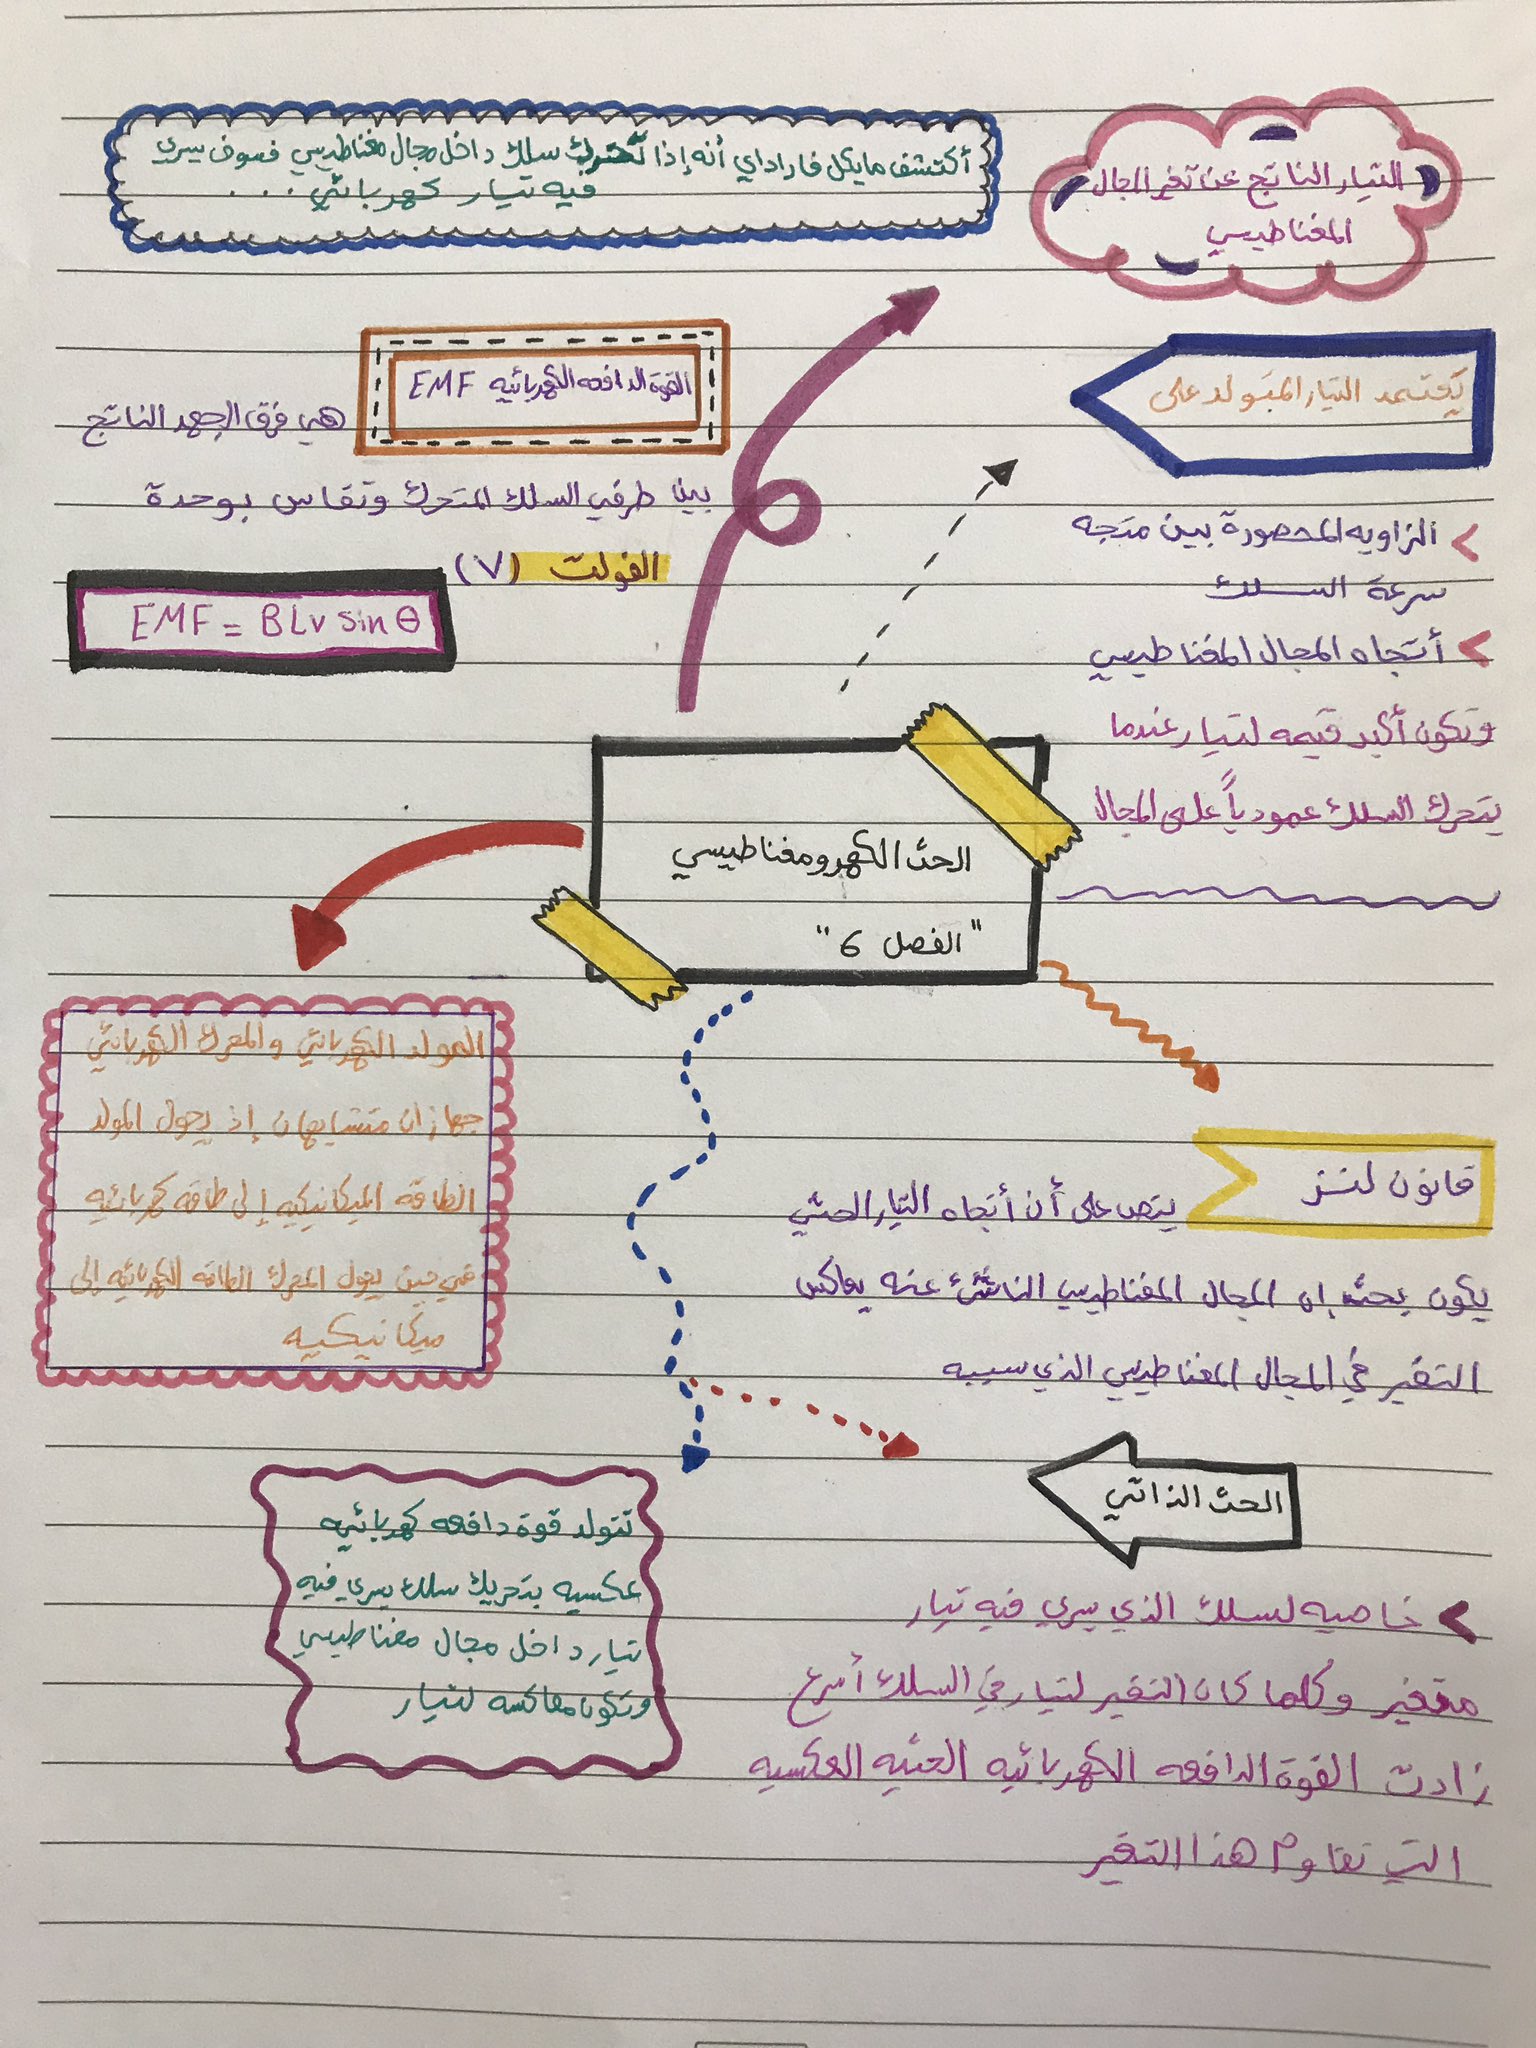 التيار الناتج عن تغير المجال
المغناطيسي
أكتشف مايكل فاراداي أنه إذا تحرك سلك داخل مجال مغناطيسي فسوف يسري
فيه تيار كهربائي . . .
يعتمد التيار المتولد على
> الزاويه المحصورة بين متجه
سرعة السلك
> أتجاه المجال المغناطيسي
وتكون أكبر قيمه لتيار عندما
يتحرك السلك عمودياً على المجال
القوة الدافعه الكهربائيه EMF
هي فرق الجهد الناتج
بين طرفي السلك المتحرك وتقاس بوحدة
الفولت (V)
EMF = BLv sin θ
الحث الكهرومغناطيسي
"الفصل 6"
المولد الكهربائي والمحرك الكهربائي
جهازان متشابهان إذ يحول المولد
الطاقه الميكانيكيه إلى طاقه كهربائيه
في حين يحول المحرك الطاقه الكهربائيه إلى
ميكانيكيه
قانون لنز
ينص على أن أتجاه التيار الحثي
يكون بحث إن المجال المغناطيسي الناشئ عنه يعاكس
التغير في المجال المغناطيسي الذي سببه
الحث الذاتي
> خاصيه لسلك الذي يسري فيه تيار
متغير وكلما كان التغير لتيار في السلك أسرع
زادت القوة الدافعه الكهربائيه الحثيه العكسيه
التي تقاوم هذا التغير
تتولد قوة دافعه كهربائيه
عكسيه بتحريك سلك يسري فيه
تيار داخل مجال مغناطيسي
وتكون معاكسه لتيار